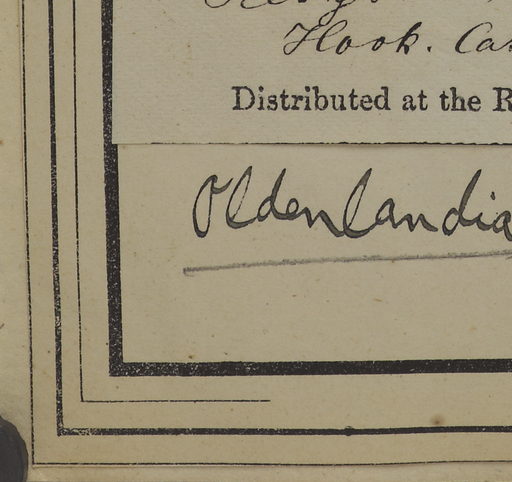 Hook. Cas
Distributed at the R
Oldenlandia